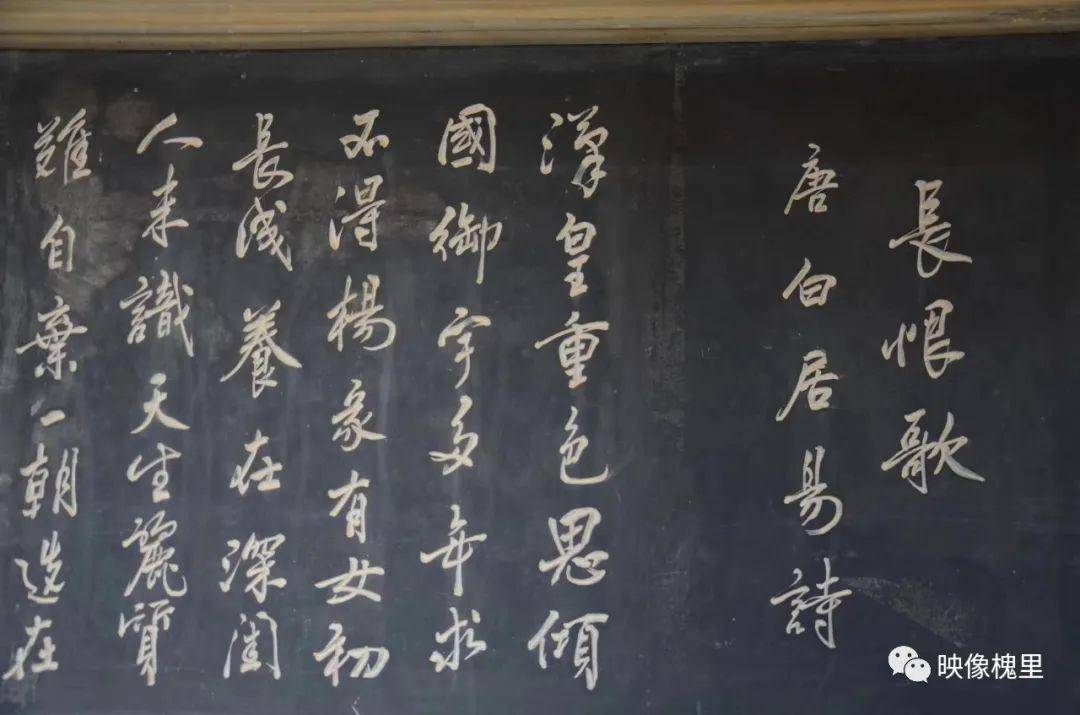 長恨歌
唐白居易詩
漢皇重色思傾
國御宇多年求
不得楊家有女初
長成養在深閨
人未識天生麗質
難自棄一朝選在
映像槐里